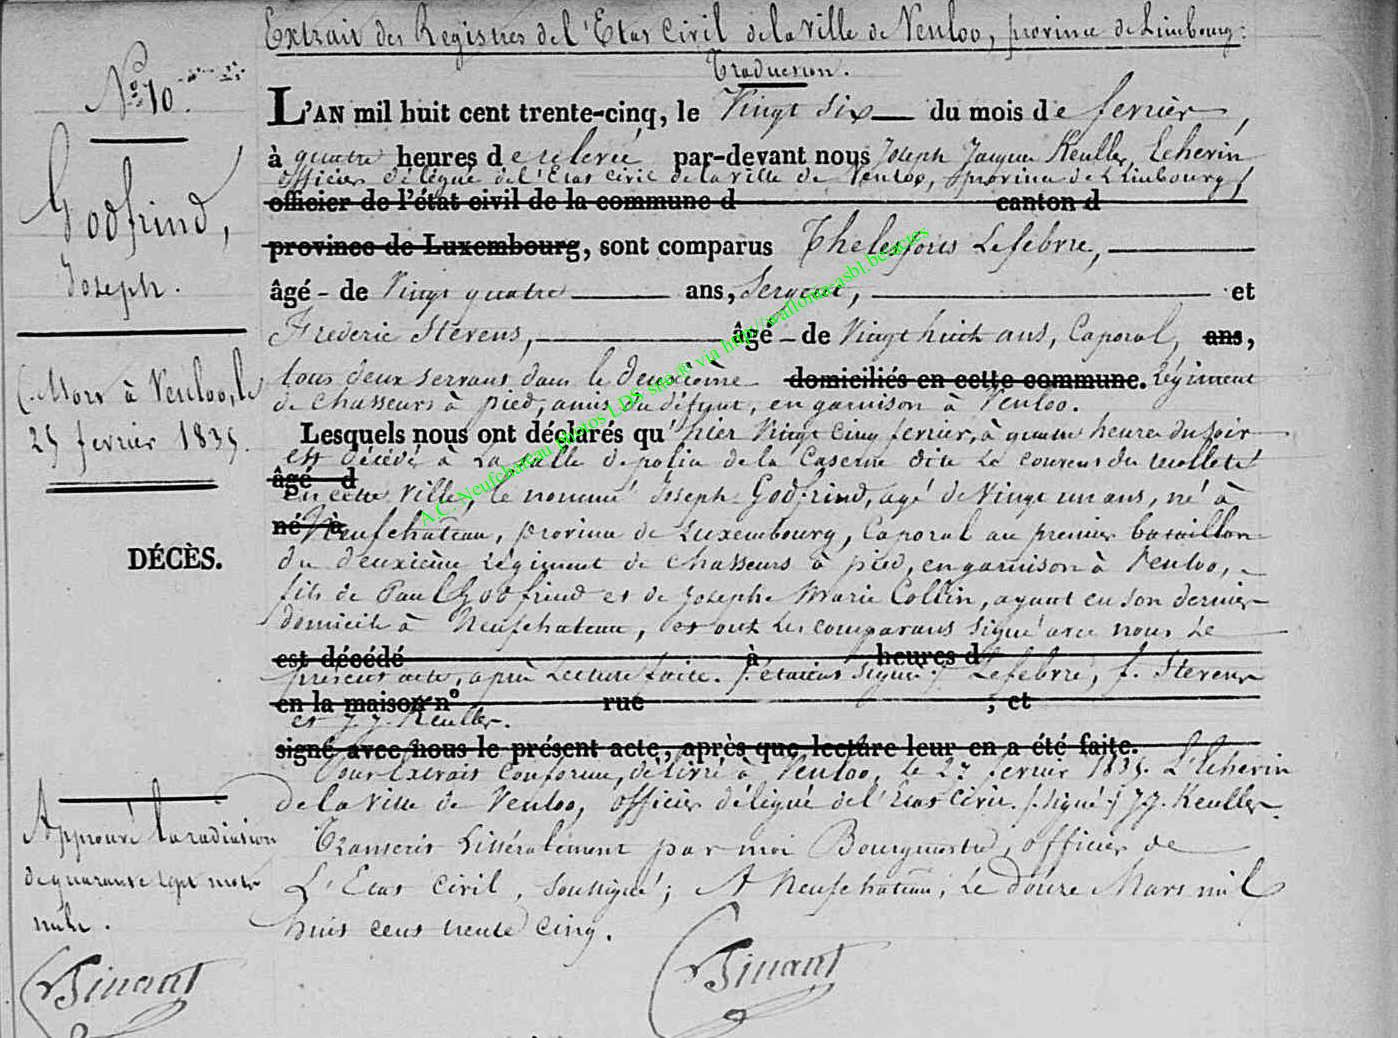 Extrait des Registres de l'Etat Civil de la Ville de Venloo, province de Limbourg:
Traduction.
N.º 10.
Godfrind,
Joseph.
(Mort à Venloo, le
25 fevrier 1835.
DÉCÈS.
L'AN mil huit cent trente-cinq, le Vingt six du mois de fevrier,
à quatre heures de relevée par-devant nous Joseph Jacques Keuller, Echevin
officier délégué de l'Etat civil de la ville de Venloo, province de Limbourg,
officier de l'état civil de la commune d canton d
province de Luxembourg, sont comparus Thelesfoies Lefebvre,
âgé - de Vingt quatre ans, Sergent, et
Frederic Stevens, âgé - de Vingt huit ans, Caporal, ans,
tous deux servans dans le deuxième domiciliés en cette commune. régiment
de chasseurs à pied, amis du défunt, en garnison à Venloo.
Lesquels nous ont déclarés qu'hier Vingt cinq fevrier, à quatre heures du soir
est décédé à la salle de police de la Caserne dite le couvent du
âgé d
en cette ville, le nommé Joseph Godfrind, agé de Vingt un ans, né à
né à
Neufchateau, province de Luxembourg, Caporal au premier bataillon
du deuxième régiment de chasseurs à pied, en garnison à Venloo,
fils de Paul Godfrind et de Josephe Marie Collin, ayant eu son dernier
domicile à Neufchateau, et ont les comparans signé avec nous le
est décédé à heures d
présent acte, après lecture faite. /:étaient signé:/ Lefebvre, f. Stevens
en la maison nº rue ; et
et J. J. Keuller.
signé avec nous le présent acte, après que lecture leur en a été faite.
Pour Extrait conforme, délivré à Venloo, le 27 fevrier 1835. L'Echevin
de la ville de Venloo, officier délégué de l'Etat civil. /:signé:/ J. J. Keuller.
Transcris littéralement par moi Bourgmestre, officier de
L'Etat civil, soussigné; A Neufchateau, le douze Mars mil
huit cent trente cinq.
Approuvé la radiation
de quarante sept mots
nuls.
Dinant
Dinant
A.C. Neufchateau photos LDS saisie via http://wallonica.asbl.be/actes